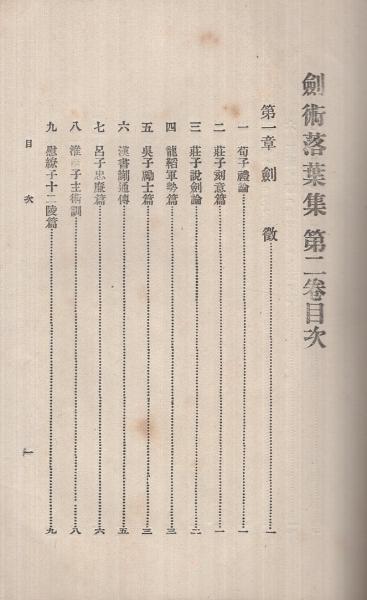 劍術落葉集 第二卷目次
第一章 劍徵……一
一 荀子禮論……一
二 莊子刻意篇……一
三 莊子說劍論……二
四 龍韜軍勢篇……三
五 吳子勵士篇……三
六 漢書蒯通傳……五
七 呂子忠廉篇……六
八 淮 子主術訓……八
九 尉繚子十二陵篇……九
目次
一